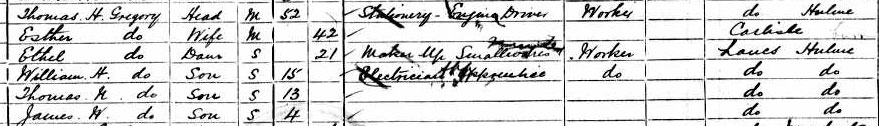 Thomas. H. Gregory Head M 52 Stationery - Engine Driver Worker do Hulme
Esther do Wife M 42 Carlisle
Ethel do Daur S 21 Maker Up Smallwares Worker Lancs Hulme
William. H. do Son S 15 Electricians Apprentice do do do
Thomas. N. do Son S 13 do do
James. W. do Son S 4 do do